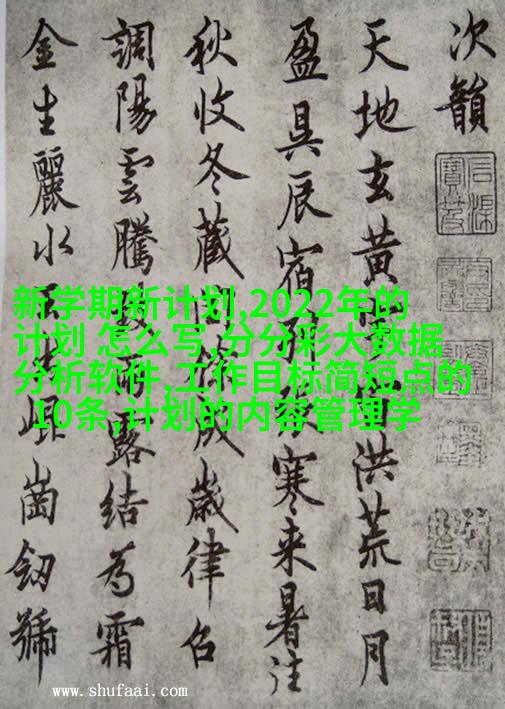 次韻
天地玄黃洪荒日月
盈昃辰宿列寒來暑往
秋收冬藏成歲律召
調陽雲騰雨露結為霜
金生麗水崐崗劍號
新学期新计划,2022年的
计划 怎么写,分分彩大数据
分析软件,工作目标简短点的
10条,计划的内容管理学
www.shufaai.com